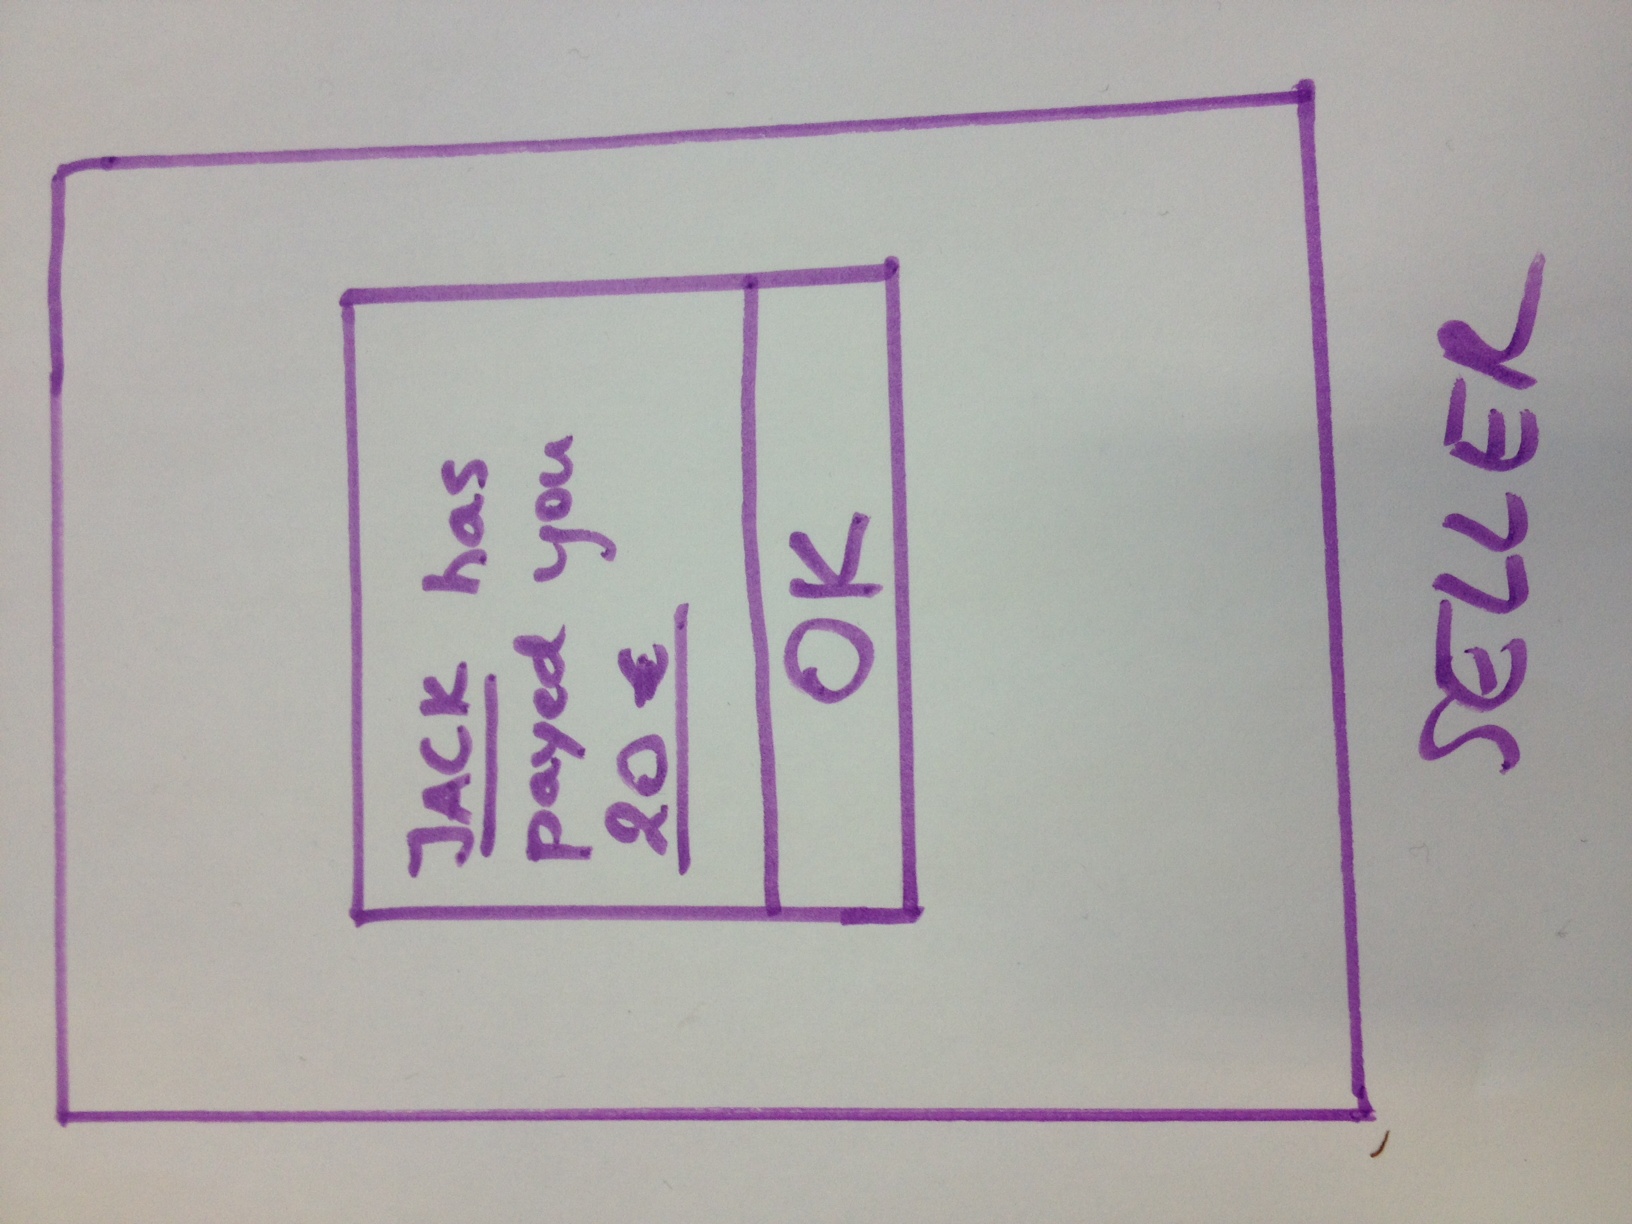 JACK has
payed you
20 €
OK
SELLER